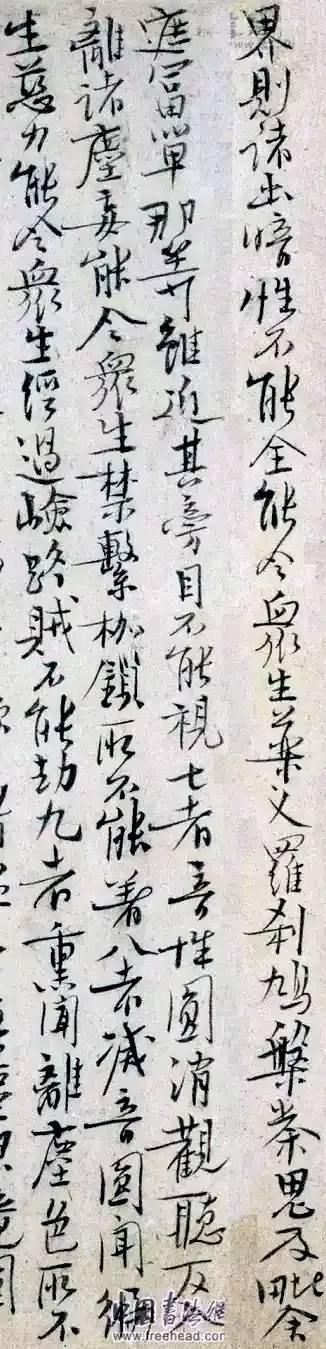 界則諸幽暗性不能全能令衆生藥叉羅刹鳩槃荼鬼及毗舍
遮富單那等雖近其旁目不能視七者音性圓消觀聽反
離諸塵妄能令衆生禁繫枷鎖所不能著八者滅音圓聞徧
生慈力能令衆生經過險路賊不能劫九者熏聞離塵色所不
中国书法网
www.freehead.com